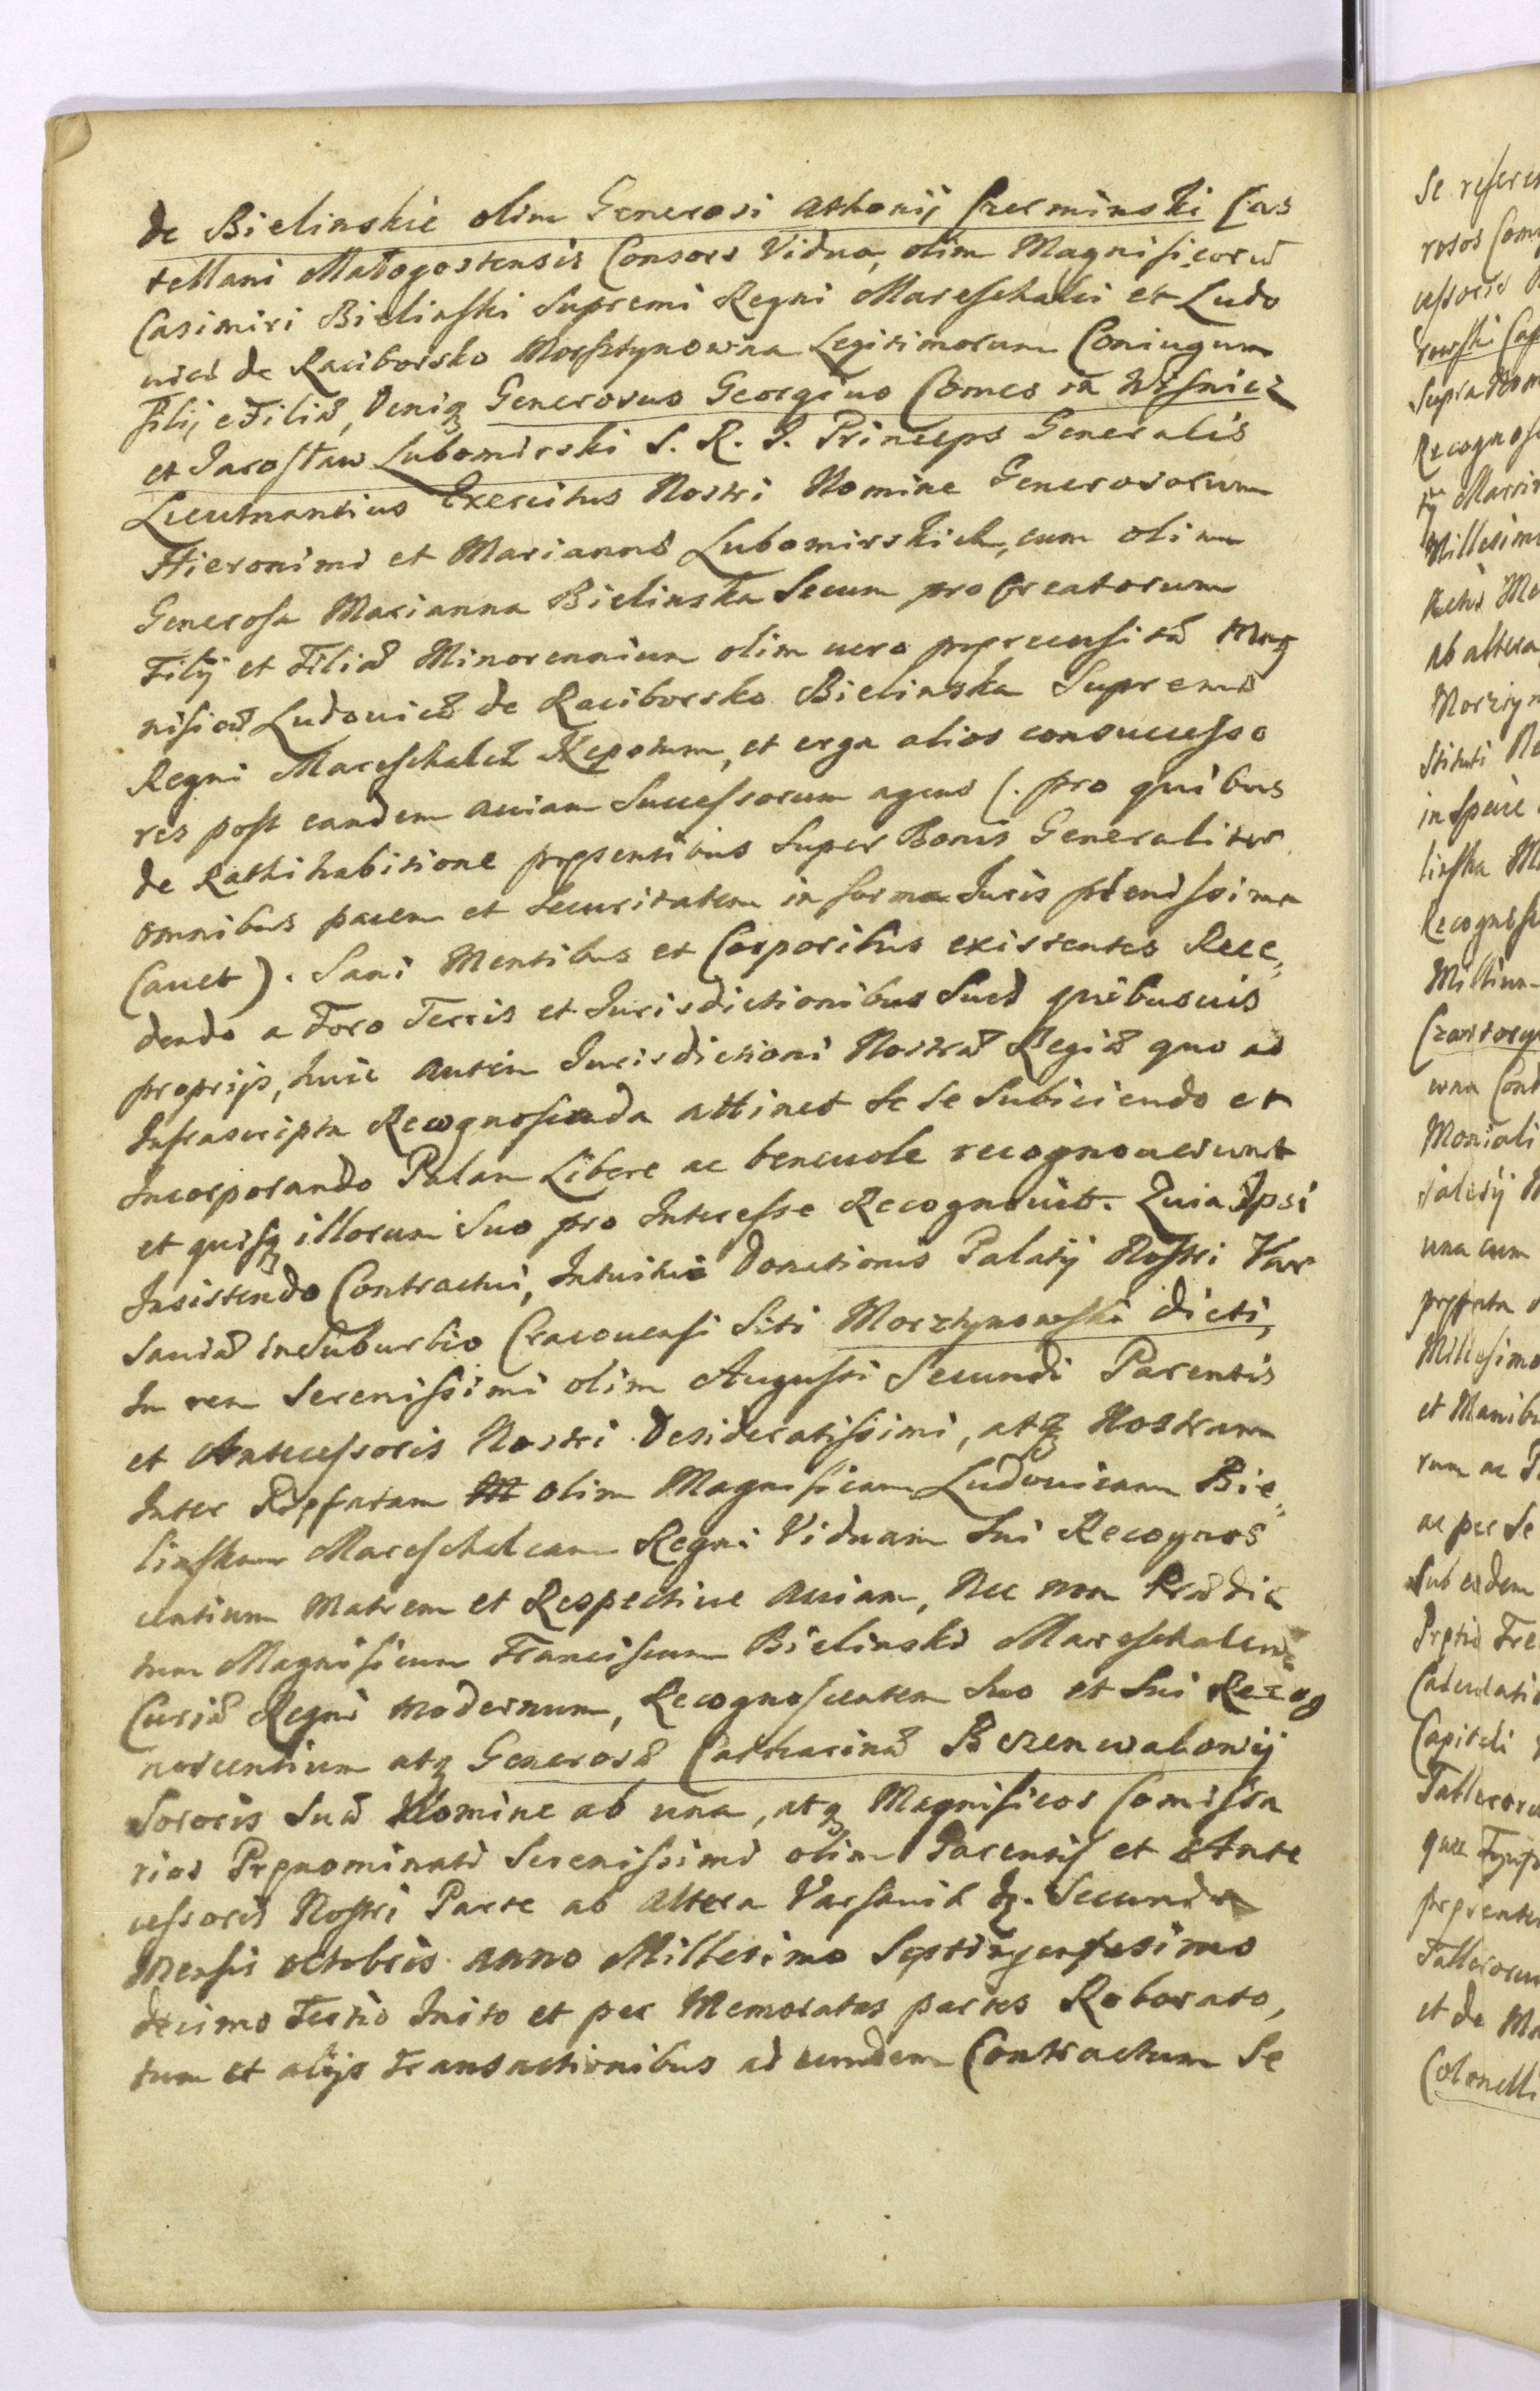 de Bielinskie olim Generosi Athonij Czerminski Cas
tellani Małogostensis Consors Vidua, olim Magnificorū
Casimiri Bielinski Supremi Regni Mareschalci et Ludo
uicæ de Raciborsko Morsztynowna Legitimorum Coniugum
filij e Filiæ, Deniqꝫ Generosus Georgius Comes in Wisnicz
et Jarosław Lubomirski S. R. I. Princeps Generalis
Lieutnantius Exercitus Nostri Nomine Generosorum
Hieronimi et Mariannæ Lubomirskich, cum olim
Generosa Marianna Bielinska Secum pro Creatorum
Filij et Filiæ Minorennium olim uero prærecensitæ Mag
nificæ Ludouicæ de Raciborsko Bielinska Supremæ
Regni Mareschalcæ Nepotum, et erga alios consuccesso
res post eandem auiam Successorum agens (. pro quibus
de Rathihabitione præsentibus Super Bonis Generaliter
omnibus pacem et Securitatem in forma Juris plenissima
Cauet ). Sani Mentibus et Corporibus existentes Rece„
dendo a Foro Terris et Jurisdictionibus Suis quibusuis
proprijs, huic autem Jurisdictioni Nostræ Regiæ quo ad
Infrascripta Recognoscenda attinet Se Se Subiiciendo et
Incorporando Palam Libere ac beneuole recognouerunt
et quisqꝫ illorum Suo pro Interesse Recognouit. Quia Ipsi
Insistendo Contractui, Intuitu Donationis Palatij Nostri Var
sauiæ in Suburbio Cracouensi Siti Morztynowski dicti,
In rem Serenissimi olim Augusti Secundi Parentis
et Antecessoris Nostri Desideratissimi, atqꝫ Nostram
Inter Præfatam M olim Magnificam Ludouicam Bie„
linskam Mareschalcam Regni Viduam Sui Recognos
centium Matrem et Respectiue auiam, Nec non Prædic
tum Magnificum Franciscum Bielinski Mareschalcum
Curiæ Regni modernum, Recognoscentem Suo et Sui Recog
noscentium atqꝫ Generosæ Catharinæ Bezenwalowy
Sororis Suæ Nomine ab una, atqꝫ Magnificos Comissa
rios Prænominati Serenissimi olim Parentis et Ante
cessoris Nostri Parte ab altera Varsauiæ Secunda
Mensis octobris anno Millesimo Septingentesimo
decimo Tertio Inito et per Memoratas partes Roborato,
tum et alijs Transactionibus ad eundem Contractum Se